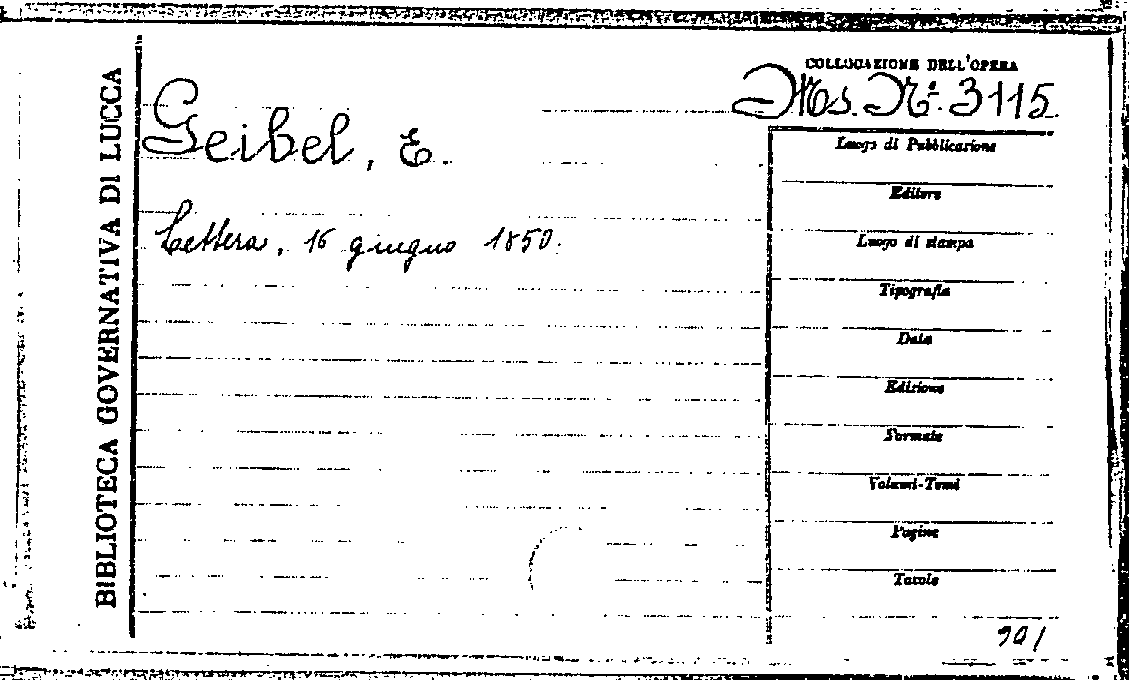 BIBLIOTECA GOVERNATIVA DI LUCCA
COLLOCAZIONE DELL'OPERA
Ms. Nº. 3115.
Geibel, E.
Lettera, 16 giugno 1850.
Luogo di Pubblicazione
Editore
Luogo di stampa
Tipografia
Data
Edizione
Formato
Volumi-Tomi
Pagine
Tavole